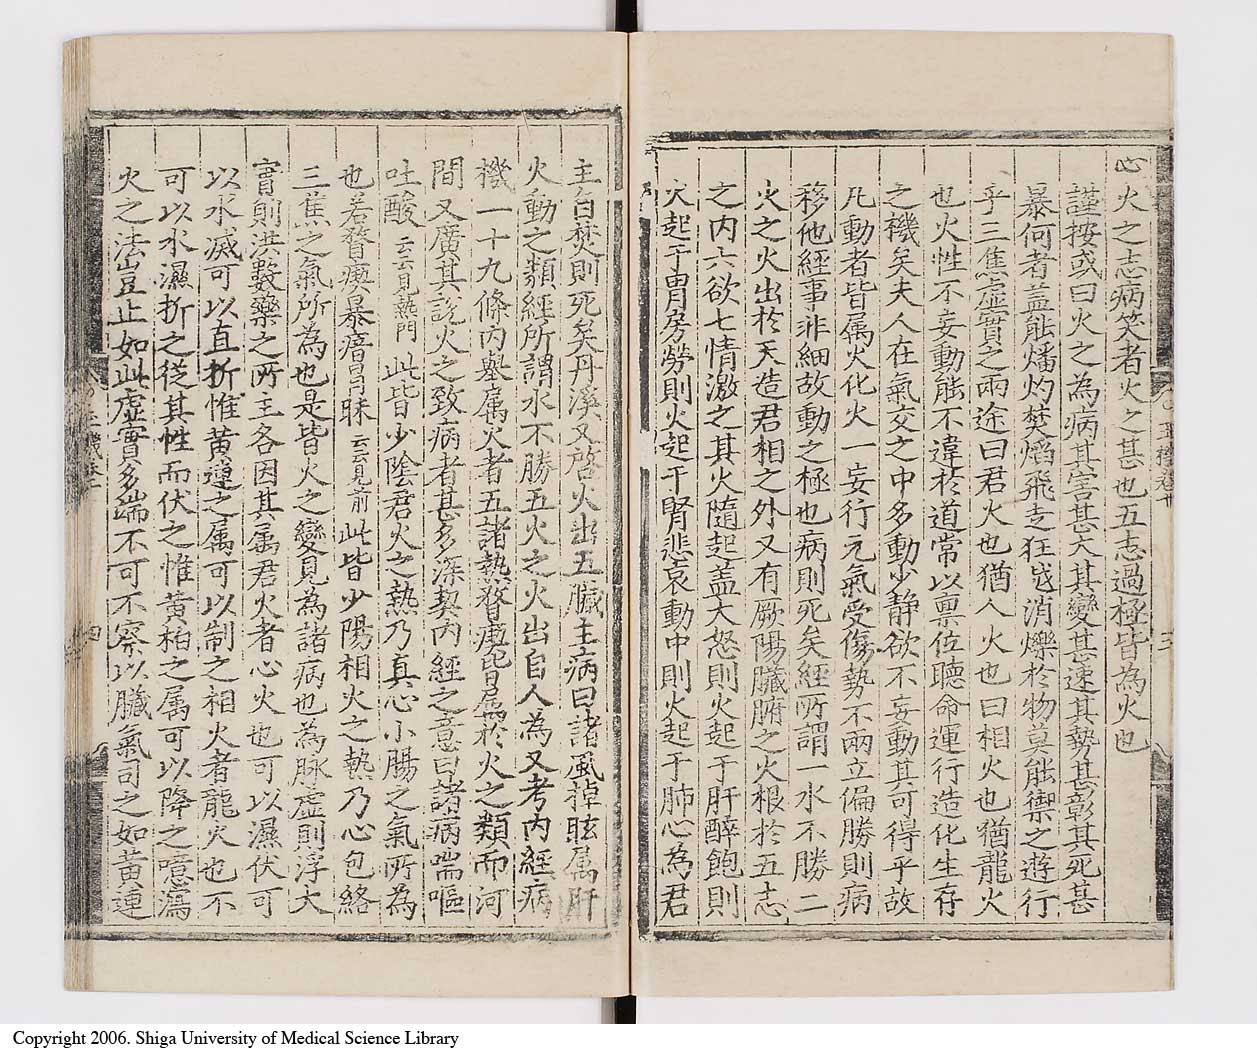 心火之志病笑者火之甚也五志過極皆為火也
謹按或曰火之為病其害甚大其變甚速其勢甚彰其死甚
暴何者蓋能燔灼焚焰飛走狂越消爍於物莫能禦之遊行
乎三焦虛實之兩途曰君火也猶人火也曰相火也猶龍火
也火性不妄動能不違於道常以禀位聽命運行造化生存
之機矣夫人在氣交之中多動少静欲不妄動其可得乎故
凡動者皆属火化火一妄行元氣受傷勢不兩立偏勝則病
移他經事非細故動之極也病則死矣經所謂一水不勝二
火之火出於天造君相之外又有厥陽臟腑之火根於五志
之内六欲七情激之其火隨起蓋大怒則火起于肝醉飽則
火起于胃房勞則火起于腎悲哀動中則火起于肺心為君
主自焚則死矣丹溪又啓火出五臟主病曰諸風掉眩属肝
火動之類經所謂水不勝五火之火出自人為又考内經病
機一十九條内舉属火者五諸熱瞀瘛皆属於火之類而河
間又廣其說火之致病者甚多深契内經之意曰諸病喘嘔
吐酸云云見熱門此皆少陰君火之熱乃真心小腸之氣所為
也若瞀瘛暴瘖冒昧云云見前此皆少陽相火之熱乃心包絡
三焦之氣所為也是皆火之變見為諸病也為脉虛則浮大
實則洪數藥之所主各因其属君火者心火也可以濕伏可
以水滅可以直折惟黄連之属可以制之相火者龍火也不
可以水濕折之從其性而伏之惟黄柏之属可以降之噫瀉
火之法豈止如此虛實多端不可不察以臟氣司之如黄連
四
Copyright 2006. Shiga University of Medical Science Library